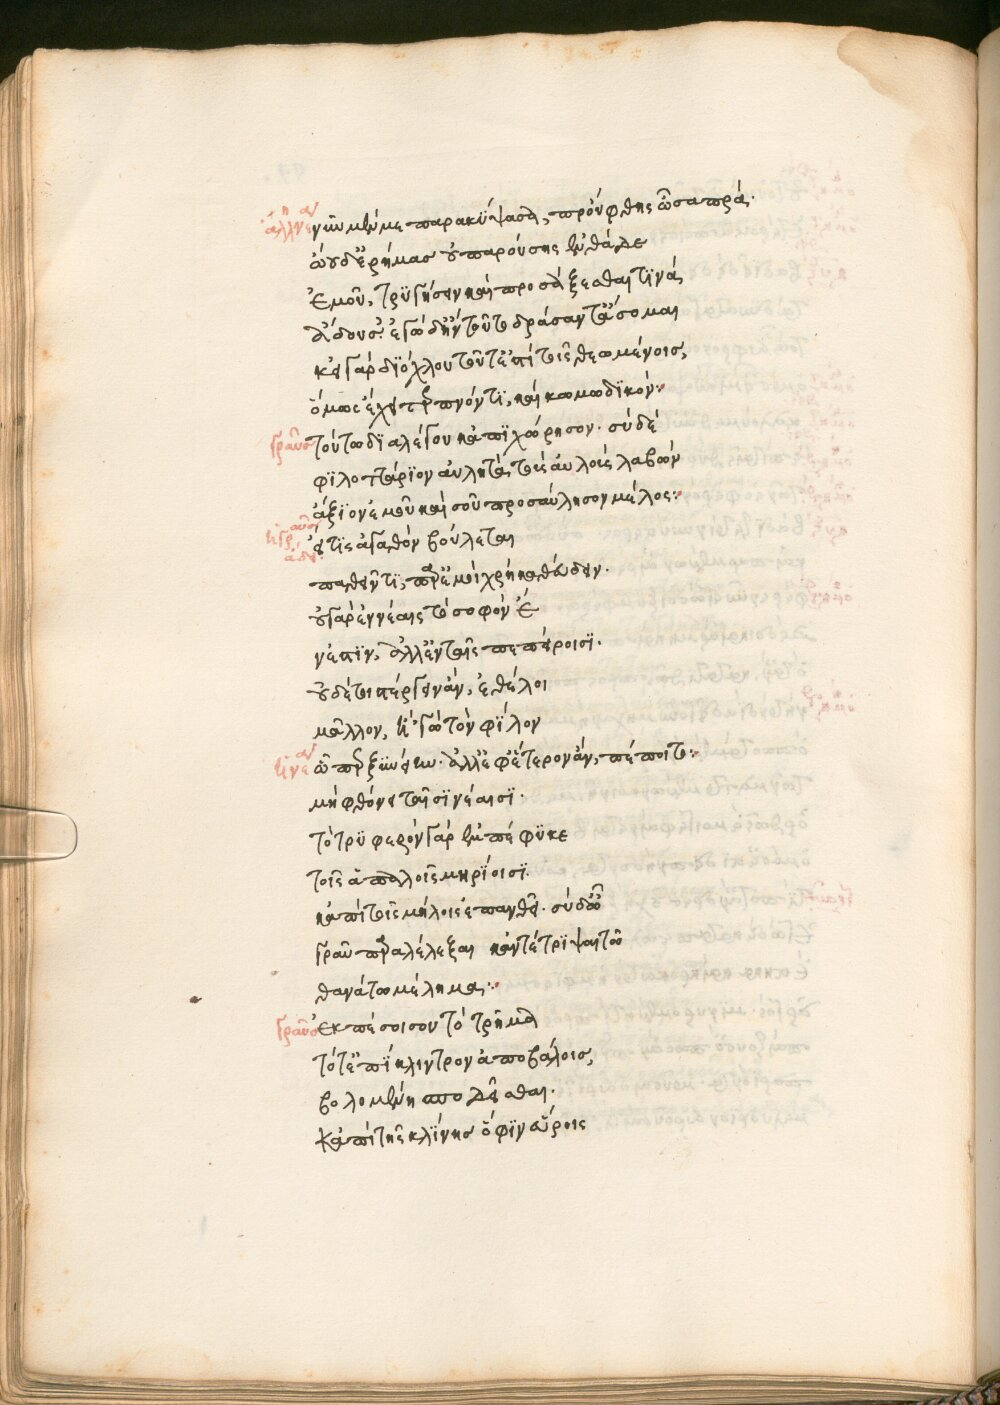 ἄλλη νεαν νῦν μέν με παρακύψασα, προὔφθης ὦ σαπρά·
ὤου δ' ἐρήμας οὐ παρούσης ἐνθάδε
ἐμοῦ, τρϋγήσειν καὶ προσάξεσθαι τϊνά,
ἄδουσ'· ἐγὼ δ' ἢν τοῦτο δράσ ἀντάσομαι
κεἰ γὰρ δϊ' όχλου τοῦτ' ἐπὶ τοῖς θεωμένοισ,
ὅμως ἔχει τερπνόν τϊ, καὶ κωμωδϊκόν:
γραῦς τούτω δϊαλέγου κἀπϊχώρησον· σὺ δέ
φϊλοττάρϊον αὐλητὰ τοὺς αὐλοὺς λαβών
ἄξϊον ἐμοῦ καὶ σοῦ προσαύλησον μέλος:
ἡ γραῦς ἄδει εἴ τϊς ἀγαθὸν βούλεται
παθεῖν τϊ, παρ' ἐμοὶ χρὴ καθεύδειν·
οὐ γὰρ ἐν νέαις τὸ σοφὸν ἔ
νεπϊν, ἀλλ' ἐν ταῖς πεπείροισϊ·
οὐδέ τι πέργειν ἂν, ἐθέλοι
μᾶλλον, ἢ 'γὼ τὸν φϊλον
ἡ νεαν ὧ περ ξυνείην· ἀλλ' ἐφ' ἕτερον ἂν, πέποιτο:
μὴ φθόνει ταῖσϊ νέαισϊ·
τὸ τρϋφερὸν γὰρ ἐμπέφϋκε
τοῖς ἁπαλοῖς μηρϊοισϊ·
κἀπὶ τοῖς μήλοις ἐπανθεῖ· σὺ δ' ὦ
γραῦ παραλέλεξαι κἀντέτρϊψαι τῶ
θανάτω μέλημα:
γραῦς ἐκπέσοι σου τὸ τρῆμα
τό τ' ἐπϊκλιντρον ἀποβάλοις,
βολομένη σποδεῖσθαι·
κἀπὶ τῆς κλϊνης ὄφϊν εὕροις